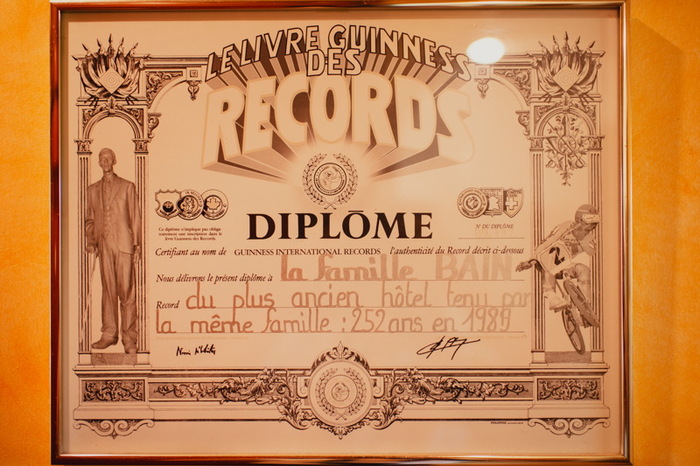 LE LIVRE GUINNESS
DES
RECORDS
Ce diplôme n'implique pas obliga-
toirement une inscription dans le
livre Guinness des Records.
N° DU DIPLÔME
DIPLÔME
Certifiant au nom de GUINNESS INTERNATIONAL RECORDS l'authenticité du Record décrit ci-dessous
Nous délivrons le présent diplôme à la famille BAIN
Record du plus ancien hôtel tenu par
la même famille : 252 ans en 1989
2